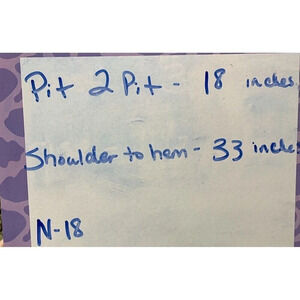 Pit 2 Pit - 18 inches
Shoulder to hem - 33 inche
N-18